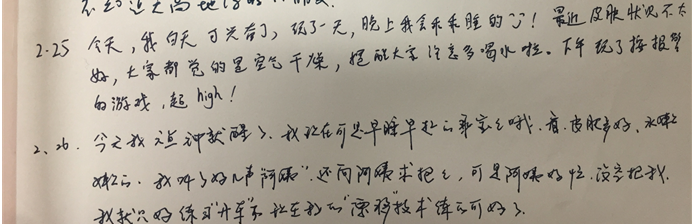 2.25 今天,我白天可兴奋了,玩了一天,晚上我会乖乖睡的!最近皮肤状况不太
好,大家都觉的是空气干燥,提醒大家注意多喝水啦。下午玩了按报警
的游戏,超high!
2、26. 今天我点钟就醒了、我现在可是早睡早起的乖宝宝哦、看、皮肤多好、水嫩
嫩的、我叫了好几声“阿姨”、还向阿姨求抱抱,可是阿姨好忙、没空抱我、
我就只好练习“开车”、现在我的“漂移”技术练的可好了、